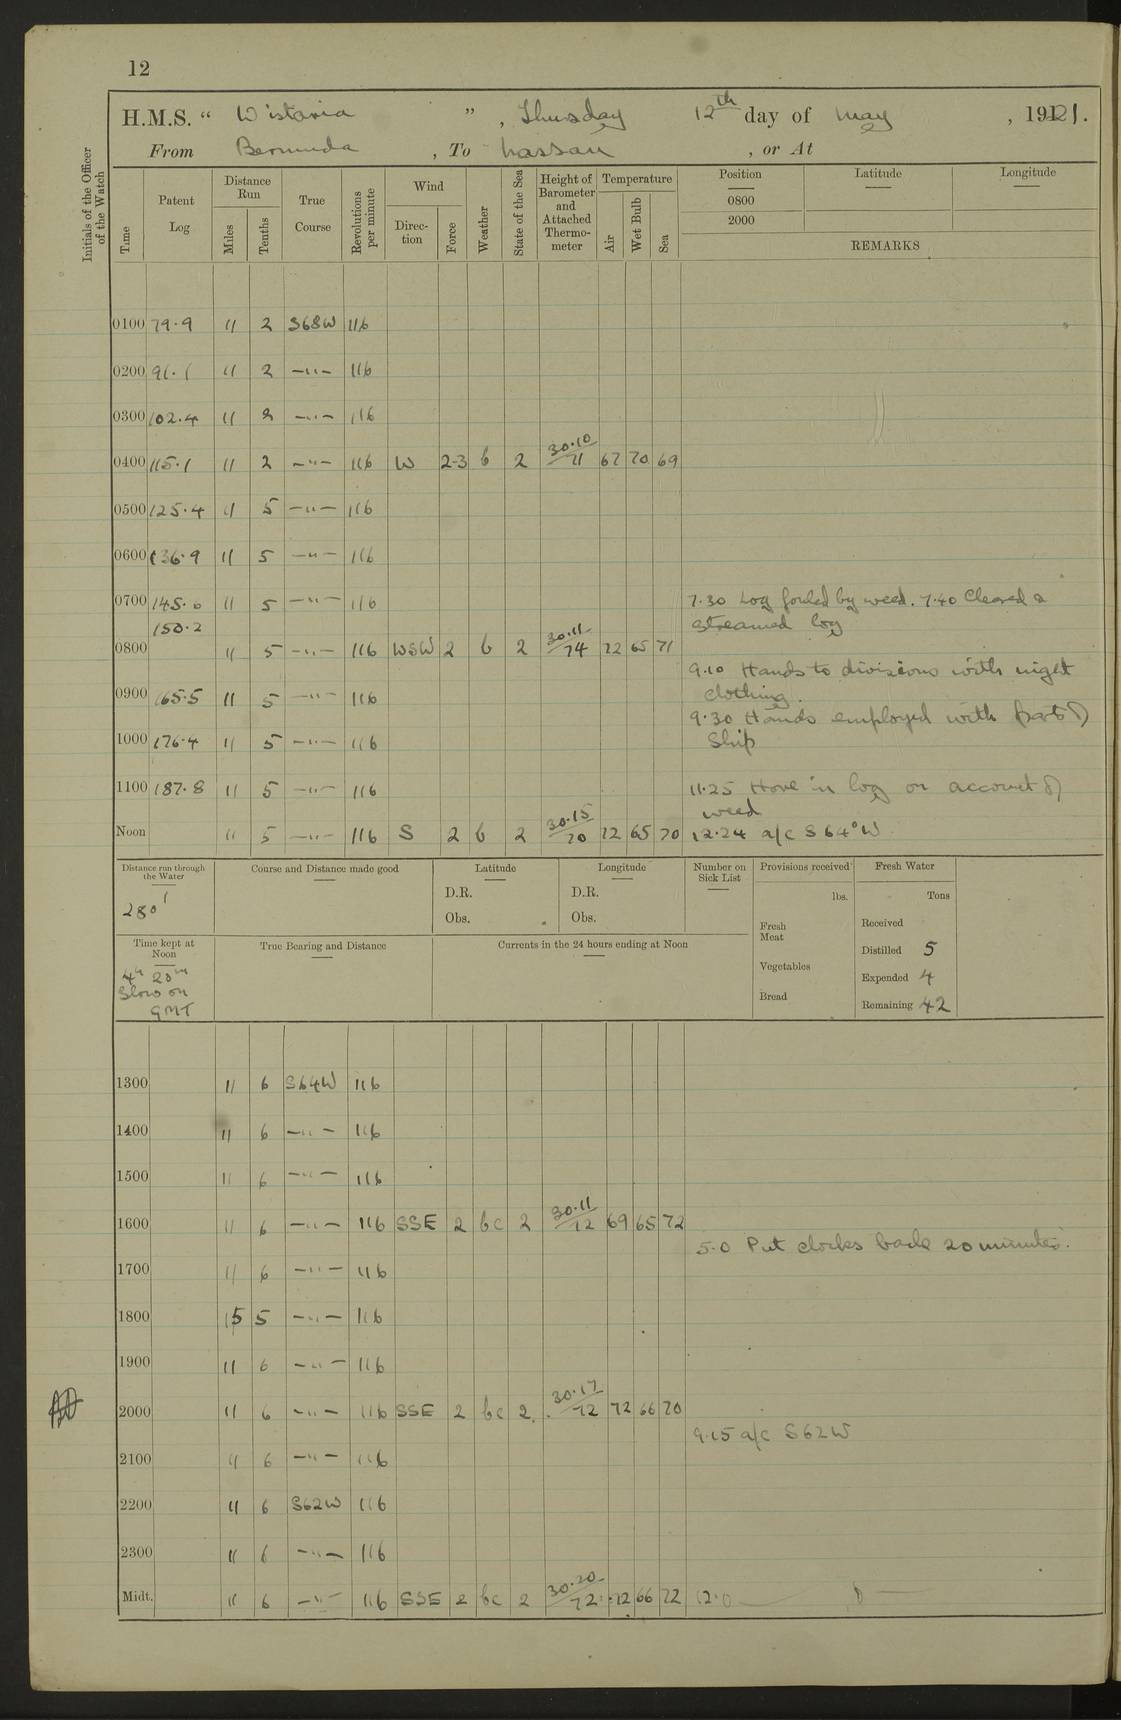 12
H.M.S. “ Wistaria ” , Thursday 12th day of May , 1921.
From Bermuda , To Nassau , or At
Initials of the Officer of the Watch
Time
Patent Log
Distance Run
Miles
Tenths
True Course
Revolutions per minute
Wind
Direc-tion
Force
Weather
State of the Sea
Height of Barometer and Attached Thermo-meter
Temperature
Air
Wet Bulb
Sea
Position
0800
2000
Latitude
Longitude
REMARKS
0100 79.9 11 2 S68W 116
0200 91.1 11 2 —"— 116
0300 102.4 11 2 —"— 116
0400 115.1 11 2 —"— 116 W 2-3 b 2 30.10/71 67 70 69
0500 125.4 11 5 —"— 116
0600 136.9 11 5 —"— 116
0700 145.0 11 5 —"— 116 7.30 Log fouled by weed. 7.40 Cleared &
150.2 streamed log
0800 11 5 —"— 116 WSW 2 b 2 30.11/74 72 65 71
9.10 Hands to divisions with night
0900 165.5 11 5 —"— 116 clothing.
9.30 Hands employed with part of
1000 176.4 11 5 —"— 116 Ship
1100 187.8 11 5 —"— 116 11.25 Hove in log on account of
weed
Noon 11 5 —"— 116 S 2 b 2 30.15/70 72 65 70 12.24 a/c S 64° W
Distance run through the Water
280'
Course and Distance made good
Latitude
D.R.
Obs.
Longitude
D.R.
Obs.
Number on Sick List
Provisions received
lbs.
Fresh Meat
Vegetables
Bread
Fresh Water
Tons
Received
Distilled 5
Expended 4
Remaining 42
Time kept at Noon
4h 20m
Slow on
GMT
True Bearing and Distance
Currents in the 24 hours ending at Noon
1300 11 6 S64W 116
1400 11 6 —"— 116
1500 11 6 —"— 116
1600 11 6 —"— 116 SSE 2 bc 2 30.11/72 69 65 72
5.0 Put clocks back 20 minutes.
1700 11 6 —"— 116
1800 15 5 —"— 116
1900 11 6 —"— 116
2000 11 6 —"— 116 SSE 2 bc 2 30.17/72 72 66 70
9.15 a/c S62W
2100 11 6 —"— 116
2200 11 6 S62W 116
2300 11 6 —"— 116
Midt. 11 6 —"— 116 SSE 2 bc 2 30.20/72 72 66 72 12.0